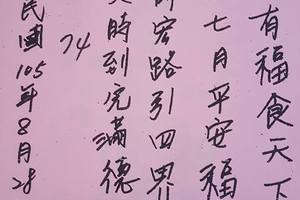 有福食天下
七月平安福
宏路引四界
時到滿德
74
民國105年8月28